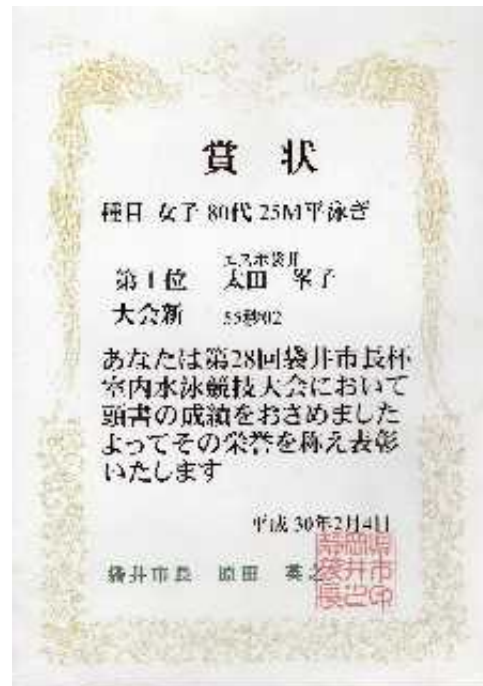 賞 状
種目 女子 80代 25M平泳ぎ
エスポ袋井
第1位 太田 子
大会新 55秒02
あなたは第28回袋井市長杯
室内水泳競技大会において
頭書の成績をおさめました
よってその栄誉を称え表彰
いたします
平成 30年2月4日
袋井市長 原田 英之
静岡県
袋井市
長之印